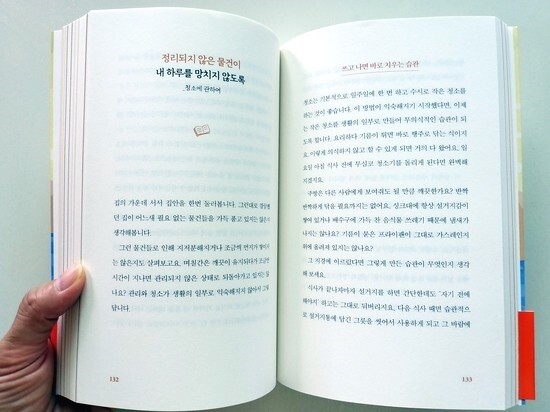 정리되지 않은 물건이
내 하루를 망치지 않도록
청소에 관하여
집의 가운데 서서 집안을 한번 둘러봅니다. 그런대로 괜찮았
던 집이 어느새 필요 없는 물건들을 가득 품고 있지는 않은지
생각해봅니다.
그런 물건들로 인해 지저분해지거나 조금씩 먼지가 쌓이지
는 않은지도 살펴보고요. 며칠간은 깨끗이 유지되다가 조금만
시간이 지나면 관리되지 않은 상태로 되돌아가고 있지는 않
나요? 관리와 청소가 생활의 일부로 익숙해지지 않아서 그렇
답니다.
132
쓰고 나면 바로 치우는 습관
청소는 기본적으로 일주일에 한 번 하고 수시로 작은 청소를
하는 것이 좋습니다. 이 방법이 익숙해지기 시작했다면, 이제
는 작은 청소를 생활의 일부로 만들어 무의식적인 습관이 되
도록 합니다. 요리하다 기름이 튀면 바로 행주로 닦는 식이지
요. 이렇게 의식하지 않고 할 수 있게 되면 거의 다 왔어요. 일
요일 아침 식사 전에 무심코 청소기를 돌리게 된다면 완벽해
지겠지요.
주방은 다른 사람에게 보여줘도 될 만큼 깨끗한가요? 반짝
반짝하게 닦을 필요까지는 없어요. 싱크대에 항상 설거지감이
쌓여 있거나 배수구에 가득 찬 음식물 쓰레기 때문에 냄새가
나지는 않나요? 기름이 묻은 프라이팬이 그대로 가스레인지
위에 올려져 있지는 않나요?
그 지경에 이르렀다면 그렇게 만든 습관이 무엇인지 생각
해 보세요.
식사가 끝나자마자 설거지를 하면 간단한데도 '자기 전에
해야지' 하고는 그대로 둬버리지요. 다음 식사 때면 습관적으
로 설거지통에 담긴 그릇을 씻어서 사용하게 되고 그 바람에
133